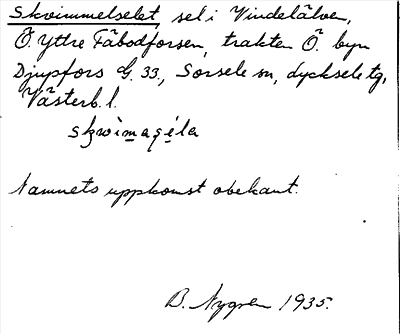 Skvimmelselet sel i Vindelälven,
Ö. Yttre Fäbodforsen, trakten Ö. byn
Djupfors G. 33, Sorsele sn, Lycksele tg,
Västerb. l.
Namnets uppkomst obekant.
B. Nygren 1935.